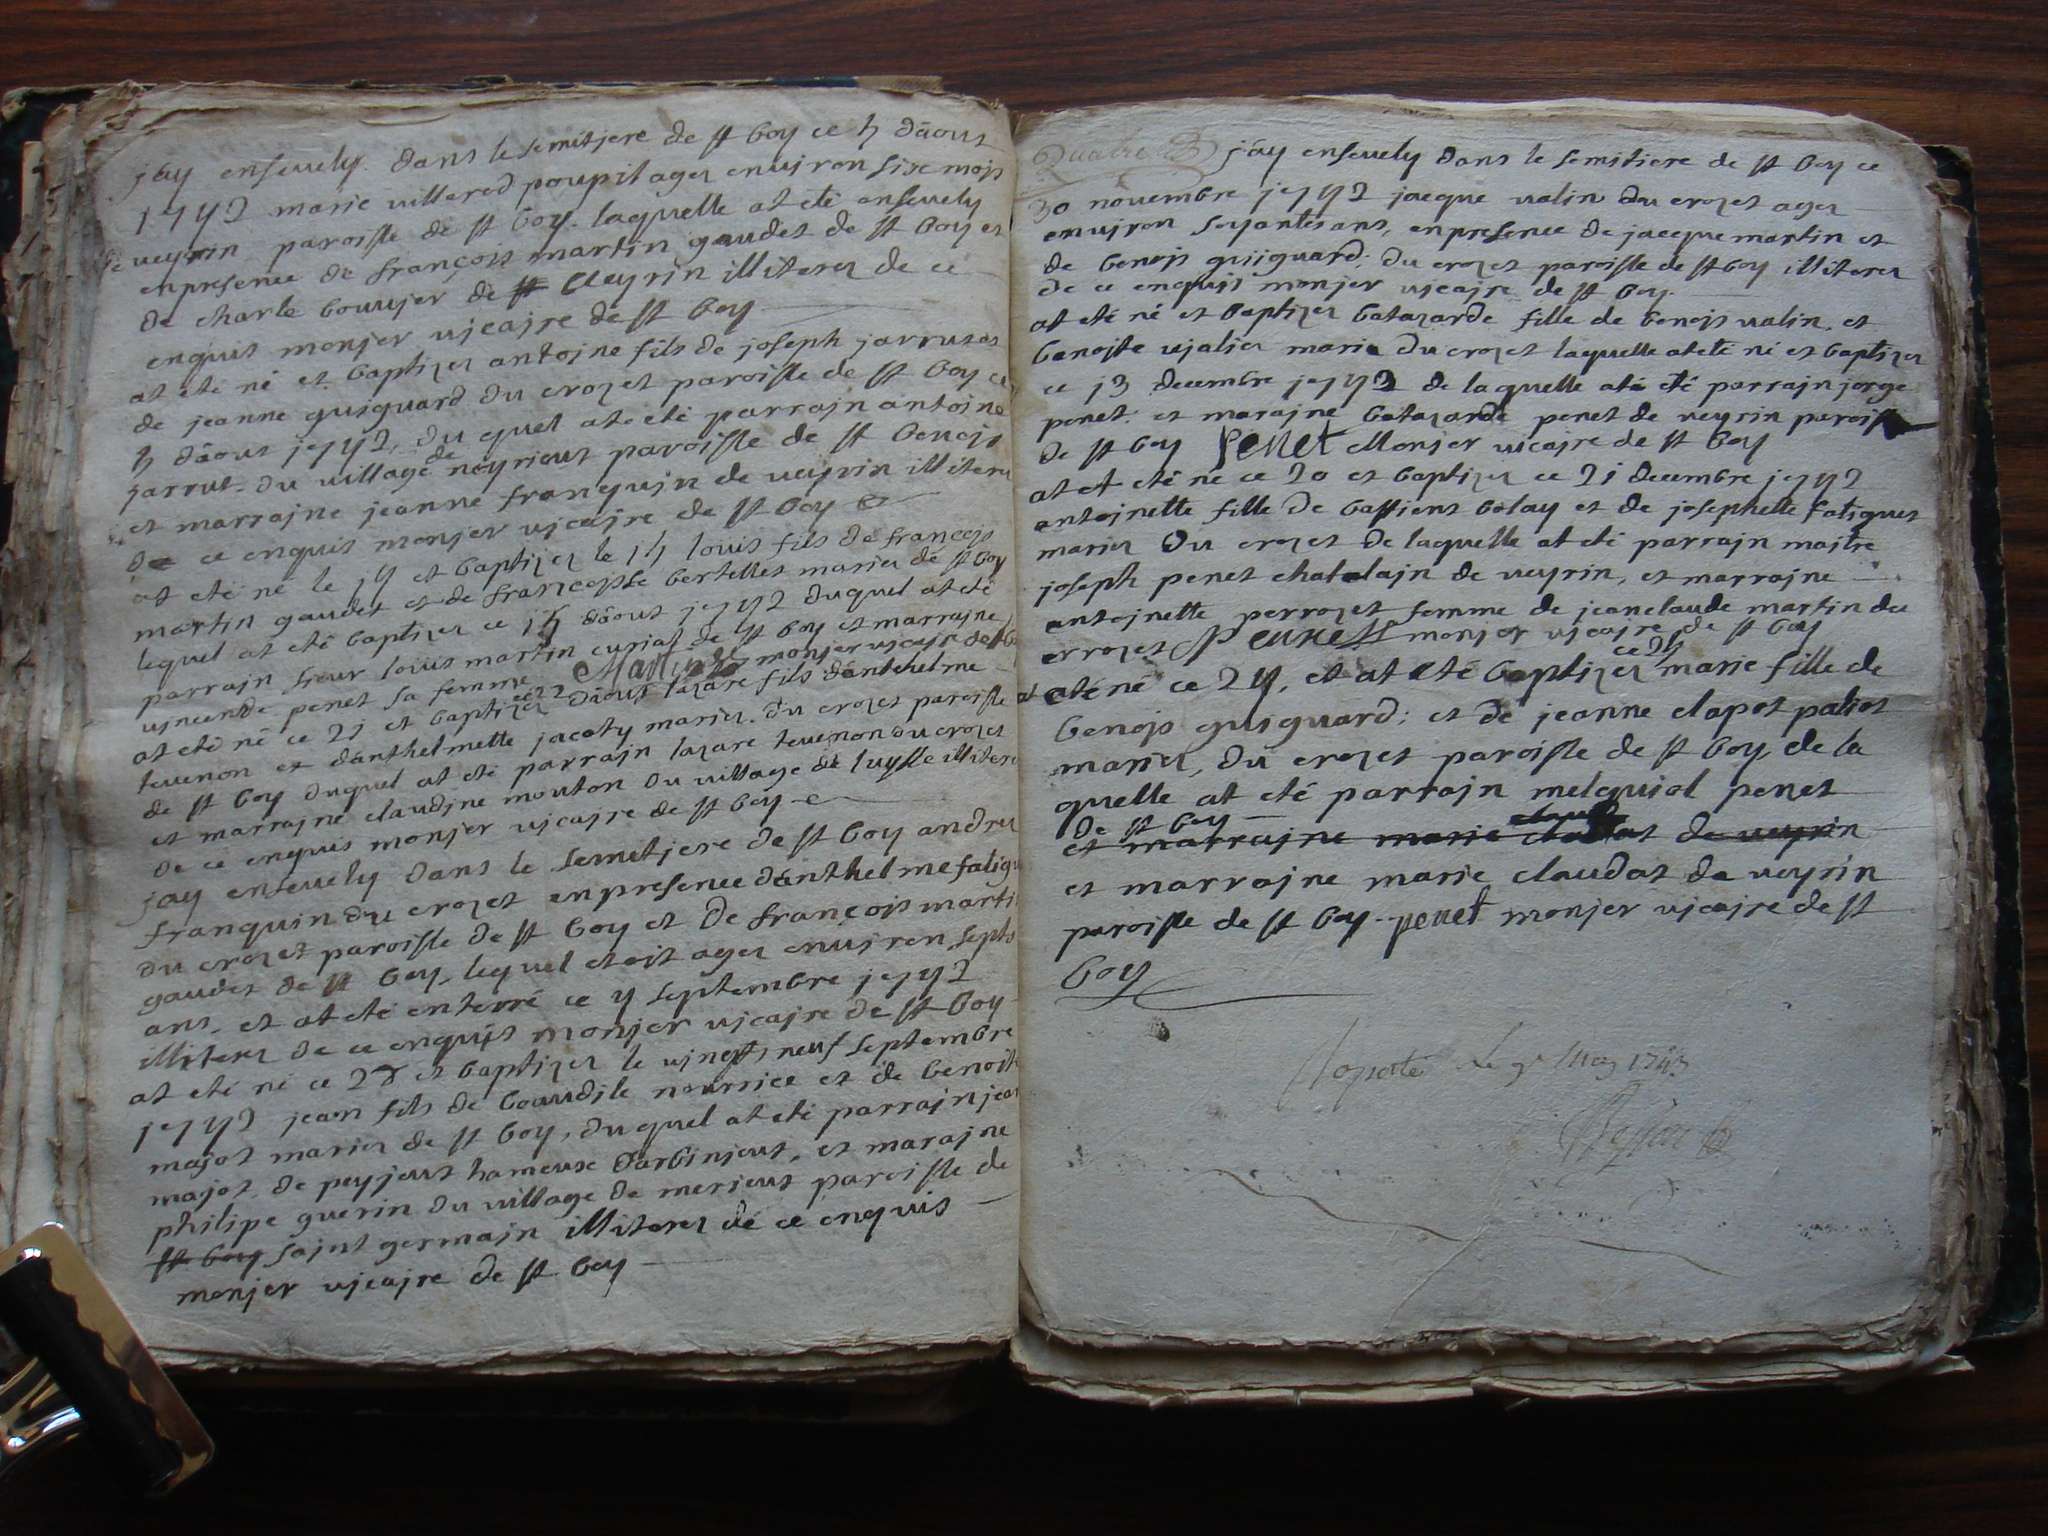 jay ensevely dans le semitjere de st boy ce 5 dâout
1742 marie villered poupit agez environ sixe mojs
de veyrin paroisse de st boy. laquelle at eté ensevely
enpresence de françojs martin gaudet de st boy et
de charle bouvjer de st veyrin illiterez de ce
enquis monjer vjcajre de st boy
at eté né et baptizez antojne fils de joseph jarrut et
de jeanne guiguard du crozet paroisse de st boy ce
5 dâout 1742, du quel at eté parrajn antojne
jarrut du village de neyrieut paroisse de st benojs
et marrajne jeanne franquin de veyrin illiterez
de ce enquis monjer vjcajre de st boy
at eté né le 14 et baptizez le 15 louis fils de françojs
martin gaudet et de françojse bertellet mariez de st boy
lequel at eté baptizez ce 15 dâout 1742 duquel at eté
parrajn sieur louis martin curiat de st boy et marrajne
vjncende penet sa femme Martin monjer vjcajre de st boy
at eté né ce 21 et baptizez ce 22 dâout lazare fils dánthelme
tevenon et dánthelmette jacoty mariez du crozet paroisse
de st boy duquel at eté parrajn lazare tevenon du crozet
et marrajne claudjne mouton du village de luysse illiterez
de ce enquis monjer vjcajre de st boy
jay ensevely dans le semitjere de st boy andrez
franquin du crozet enpresence dánthelme fatiguet
du crozet paroisse de st boy et de françojs martin
gaudet de st boy, lequel etoit agez environ septs
ans, et at eté enterré ce 4 septembre 1742
illiterez de ce enquis monjer vjcajre de st boy
at eté né ce 28 et baptizez le vjngt neuf septembre
1742 jean fils de boaudile nourrice et de benoite
majot mariez de st boy, duquel at eté parrajn jean
majot de peyjeut hameuxe darbinjeut, et marajne
philipe guerin du village de merjeut paroisse de
st boy saint germain illiterez de ce enquis
monjer vjcajre de st boy
jáy ensevely dans le semitiere de st boy ce
30 novembre 1742 jacque valin du crozet agez
environ soyantes ans, enpresence de jacque martin et
de benojs guiguard du crozet paroisse de st boy illiterez
de ce enquis monjer vjcajre de st boy
at eté né et baptizez batazarde fille de benojs valin, et
benojte vjaliez marie du crozet laquelle at eté né et baptizez
ce 13 decembre 1742 de laquelle at eté parrajn jorge
penet et marajne batazarde penet de veyrin paroisse
de st boy Penet Monjer vjcajre de st boy
at et eté né ce 20 et baptizez ce 21 decembre 1742
antojnette fille de bastient bolay et de josephette fatiguet
mariez du crozet de laquelle at eté parrajn maitre
joseph penet chatelajn de veyrin, et marrajne
antojnette perrozet femme de jeanclaude martin du
crrozet Penet monjer vjcajre de st boy
at até né ce 24, et at eté baptizez ce 25 marie fille de
benojs guiguard; et de jeanne clapot patiot
mariez, du crozet paroisse de st boy de la
quelle at eté parrajn melquiol penet
de st boy
et marrajne marie claudat de veyrin
et marrajne marie claudat de veyrin
paroisse de st boy penet monjer vjcajre de st
boy
1743